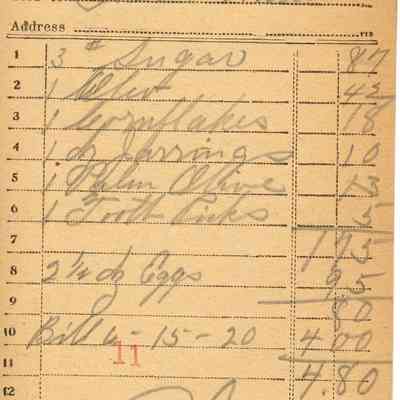 Address
1 3 # Sugar 87
2 1 Oleo 42
3 1 Cornflakes 18
4 1 dz Jar rings 10
5 1 Palm Olive 13
6 1 Tooth Picks 5
7 1 75
8 2 1/4 dz Eggs 95
9 80
10 Bill 6 - 15 - 20 4 00
11 11 4.80
12